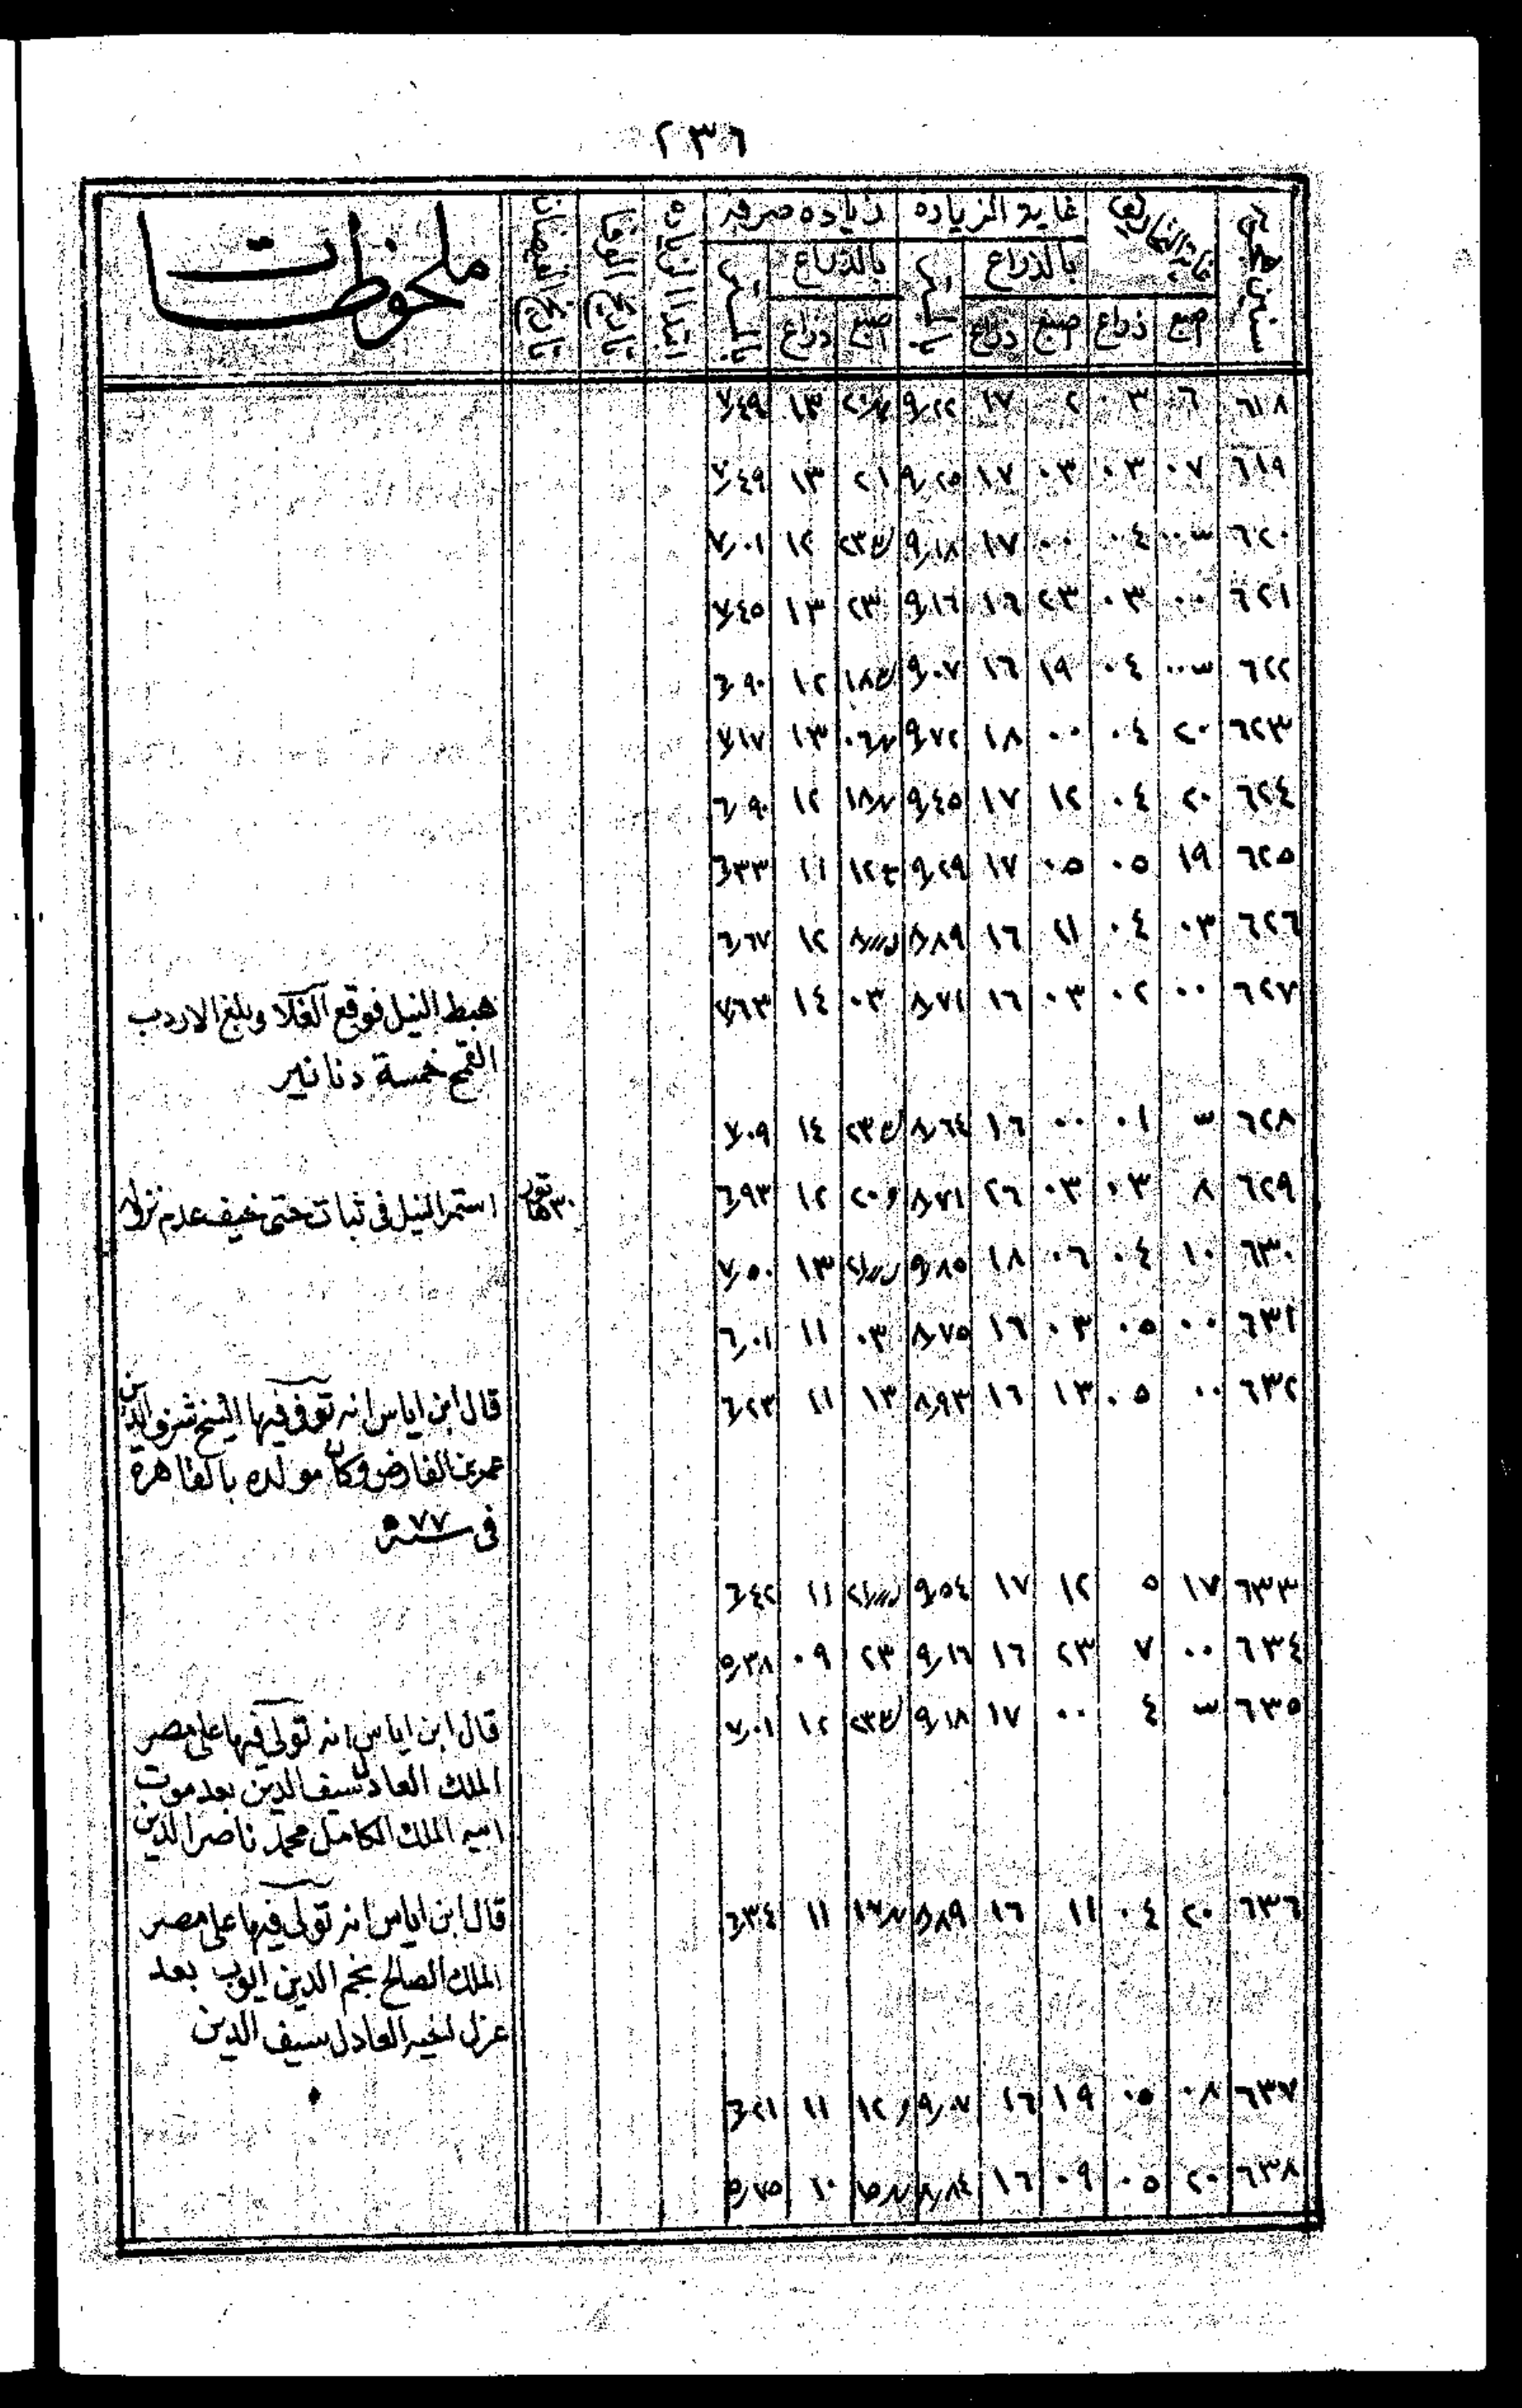 ٢٣٦
سنين هجرية | غاية التحاريق | غاية الزيادة | زيادة صرفه | ابتدا الزيادة | تاريخ الوفا | تاريخ الفيضان | ملحوظات
بالذراع | بالمتر | بالذراع | بالمتر
اصبع | ذراع | اصبع | ذراع | اصبع | ذراع
٦١٨ | ٦ | ٣ | ٢ | ١٧ | ٩٫٢٢ | ١٣ | ٧٫٤٩
٦١٩ | ٠٧ | ٠٣ | ٠٣ | ١٧ | ٩٫٢٥ | ٢١ | ١٣ | ٧٫٤٩
٦٢٠ | ٠٤ | ٠٠ | ١٧ | ٩٫١٨ | ١٢ | ٧٫٠١
٦٢١ | ٠٠ | ٠٣ | ٢٣ | ١٦ | ٩٫١٦ | ٢٣ | ١٣ | ٧٫٤٥
٦٢٢ | ٠٤ | ١٩ | ١٦ | ٩٫٠٧ | ١٢ | ٦٫٩٠
٦٢٣ | ٢٠ | ٠٤ | ٠٠ | ١٨ | ٩٫٧٢ | ١٣ | ٧٫١٧
٦٢٤ | ٢٠ | ٠٤ | ١٢ | ١٧ | ٩٫٤٥ | ١٢ | ٦٫٩٠
٦٢٥ | ١٩ | ٠٥ | ٠٥ | ١٧ | ٩٫٢٩ | ١١ | ٦٫٣٣
٦٢٦ | ٠٣ | ٠٤ | ١١ | ١٦ | ٨٫٨٩ | ٨ | ١٢ | ٦٫٦٧
٦٢٧ | ٠٠ | ٠٢ | ٠٣ | ١٦ | ٨٫٧١ | ٠٣ | ١٤ | ٧٫٦٣ | هبط النيل فوقع الغلا وبلغ الاردب
القمح خمسة دنانير
٦٢٨ | ٠١ | ٠٠ | ١٦ | ٨٫٦٤ | ١٤ | ٧٫٠٩
٦٢٩ | ٨ | ٠٣ | ٠٣ | ٢٦ | ٨٫٧١ | ٢٠ | ١٢ | ٦٫٩٣ | ٣٠ توت | استمر النيل فى ثبات حتى خيف عدم نزوله
٦٣٠ | ١٠ | ٠٤ | ٠٦ | ١٨ | ٩٫٨٥ | ١٣ | ٧٫٥٠
٦٣١ | ٠٠ | ٠٥ | ٠٣ | ١٦ | ٨٫٧٥ | ٠٣ | ١١ | ٦٫٠١
٦٣٢ | ٠٠ | ٠٥ | ١٣ | ١٦ | ٨٫٩٣ | ١٣ | ١١ | ٦٫٢٣ | قال ابن اياس انه توفى فيها الشيخ شرف الدين
عمر بن الفارض وكان مولده بالقاهرة
فى سنة ٥٧٧
٦٣٣ | ١٧ | ٥ | ١٢ | ١٧ | ٩٫٥٤ | ١١ | ٦٫٤٢
٦٣٤ | ٠٠ | ٧ | ٢٣ | ١٦ | ٩٫١٦ | ٢٣ | ٠٩ | ٥٫٣٨
٦٣٥ | ٤ | ٠٠ | ١٧ | ٩٫١٨ | ١٢ | ٧٫٠١ | قال ابن اياس انه تولى فيها على مصر
الملك العادل سيف الدين بعد موت
ابيه الملك الكامل محمد ناصر الدين
٦٣٦ | ٢٠ | ٠٤ | ١١ | ١٦ | ٨٫٨٩ | ١١ | ٦٫٣٤ | قال ابن اياس انه تولى فيها على مصر
الملك الصالح نجم الدين ايوب بعد
عزل اخيه العادل سيف الدين
٦٣٧ | ٠٨ | ٠٥ | ١٩ | ١٦ | ٩٫٠٧ | ١٢ | ١١ | ٦٫٢١
٦٣٨ | ٢٠ | ٠٥ | ٠٩ | ١٦ | ٨٫٨٤ | ١٠ | ٥٫٧٥